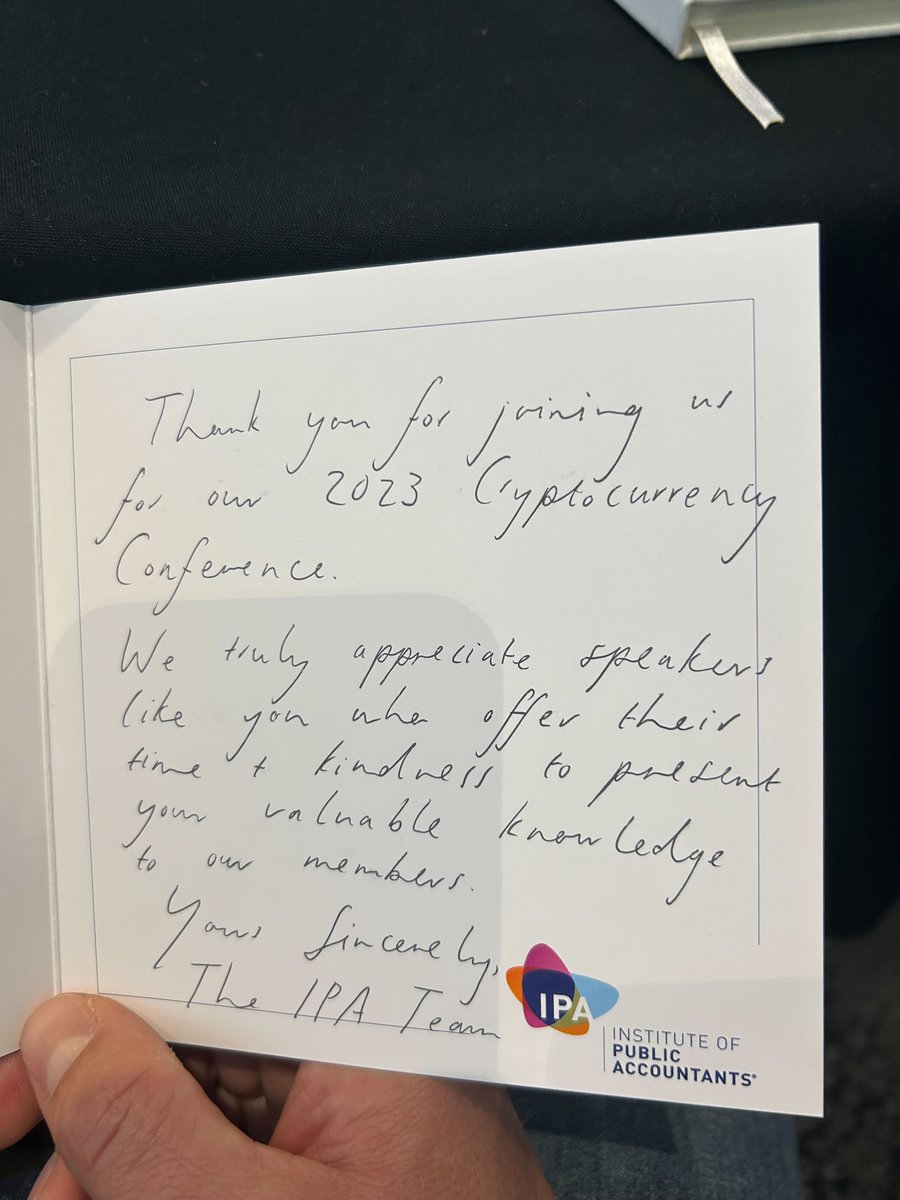 Thank you for joining us
for our 2023 Cryptocurrency
Conference.
We truly appreciate speakers
like you who offer their
time + kindness to present
your valuable knowledge
to our members.
Yours Sincerely,
The IPA Team
IPA
INSTITUTE OF
PUBLIC
ACCOUNTANTS®